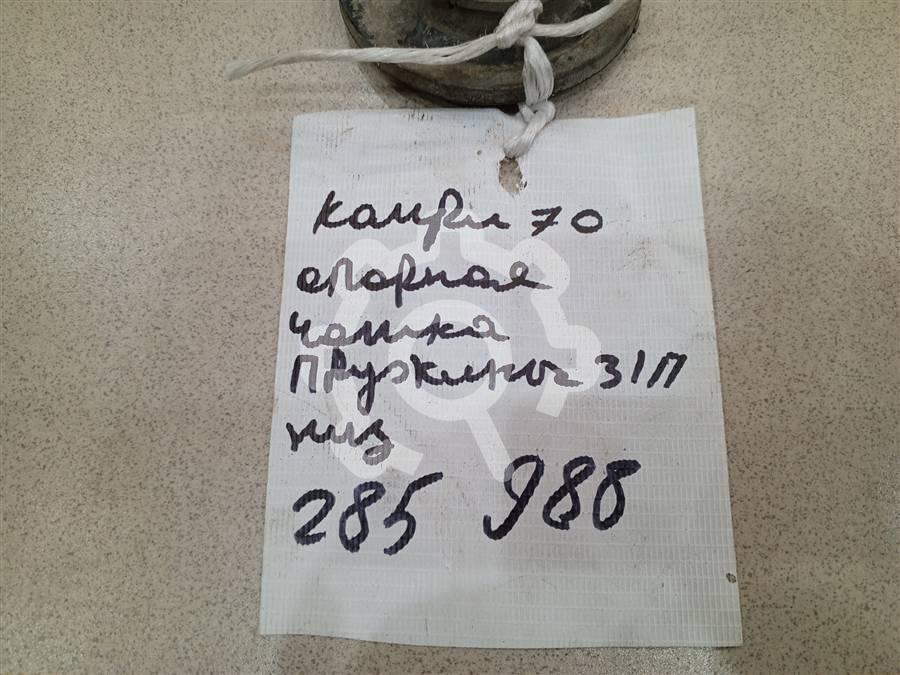 Камри 70
опорная
чашка
пружины З/П
низ
285 988